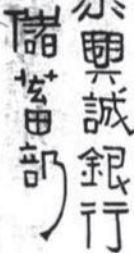 興誠銀行
儲蓄部